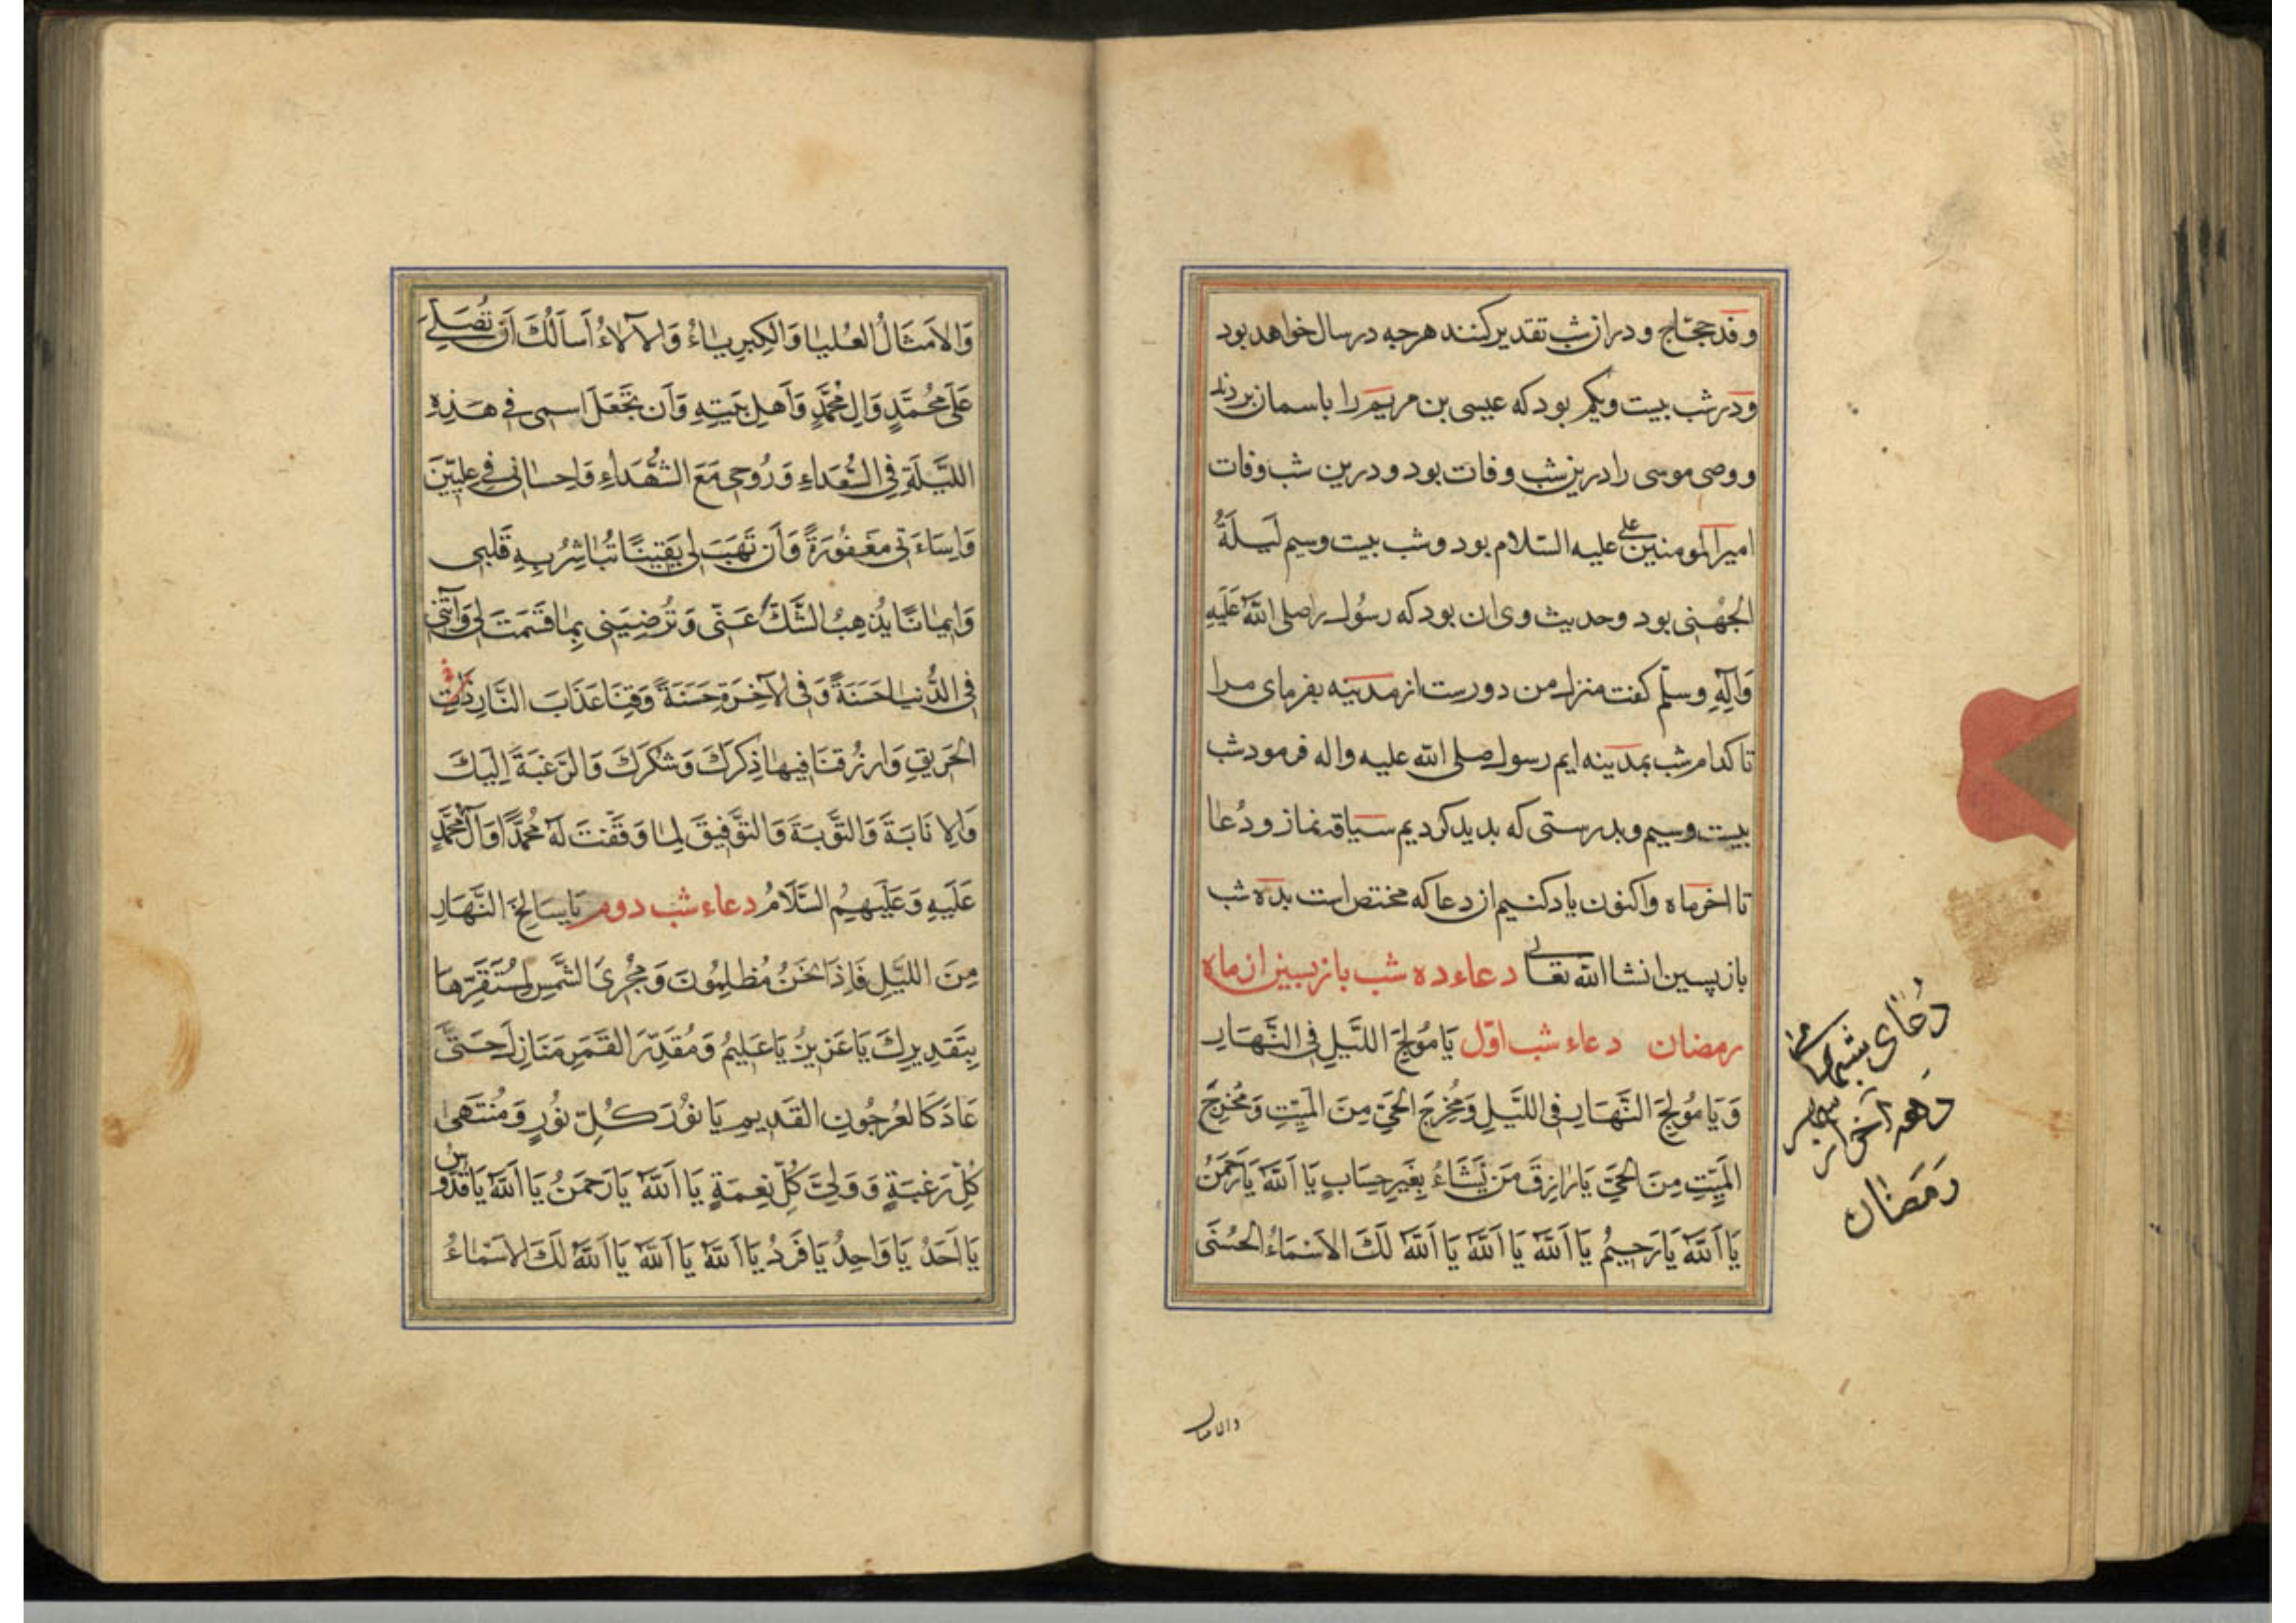 و فد حجّاج و دران شب تقدیر کنند هرچه در سال خواهد بود
و در شب بیست و یکم بود که عیسی بن مریم را باسمان بردند
و وصی موسی را درین شب وفات بود و درین شب وفات
امیر المومنین علی علیه السّلام بود و شب بیست و سیم لَیلَةُ
الجُهَنِی بود و حدیث وی ان بود که رسُول را صلی اللّه عَلَیهِ
وَآلِهِ وسلّم کفت منزل من دورست از مدینه بفرمای مرا
تا کدام شب بمدینه ایم رسول صلی اللّه علیه واله فرمود شب
بیست و سیم و بدرستی که بدید کردیم سیاقه نماز و دُعا
تا اخر ماه و اکنون یاد کنیم ان دعا که مختص است بده شب
باز پسین انشا اللّه تعالی دعاء ده شب باز پسین از ماه
رمضان دعاء شب اوّل یَا مُولِجَ اللَّیلِ فِی النَّهَارِ
وَ یَا مُولِجَ النَّهَارِ فِی اللَّیلِ وَ مُخرِجَ الحَیِّ مِنَ المَیِّتِ وَ مُخرِجَ
المَیِّتِ مِنَ الحَیِّ یَا رَازِقَ مَن یَشَاءُ بِغَیرِ حِسَابٍ یَا اَللّهُ یَا رَحمَنُ
یَا اَللّهُ یَا رَحِیمُ یَا اَللّهُ یَا اَللّهُ یَا اَللّهُ لَكَ الاَسمَاءُ الحُسنَی
دُعای
دهه آخر
رَمَضان
والامثال
وَالاَمثَالُ العُلیَا وَالکِبرِیَاءُ وَالآلَاءُ اَساَلُكَ اَن تُصَلِّیَ
عَلَی مُحَمَّدٍ وَالِ مُحَمَّدٍ وَاَهلِ بَیتِهِ وَاَن تَجعَلَ اسمِی فِی هَذِهِ
اللَّیلَةِ فِی السُّعَدَاءِ وَرُوحِی مَعَ الشُّهَدَاءِ وَاِحسَانِی فِی عِلِیّینَ
وَاِسَاءَتِی مَغفُورَةً وَاَن تَهَبَ لِی یَقِینًا تُبَاشِرُ بِهِ قَلبِی
وَاِیمَانًا یُذهِبُ الشَّكَّ عَنّی وَتُرضِیَنِی بِمَا قَسَمتَ لِی وَآتِنی
فِی الدُّنیَا حَسَنَةً وَفِی الآخِرَةِ حَسَنَةً وَقِنَا عَذَابَ النَّارِ
الحَرِیقِ وَارزُقنَا فِیهَا ذِکرَكَ وَشُکرَكَ وَالرَّغبَةَ اِلَیكَ
وَالاِنَابَةَ وَالتَّوبَةَ وَالتَّوفِیقَ لِمَا وَفَّقتَ لَهُ مُحَمَّدًا وَآلَ مُحَمَّدٍ
عَلَیهِ وَعَلَیهِمُ السَّلَامُ دعاء شب دوم یَا سَالِخَ النَّهَارِ
مِنَ اللَّیلِ فَاِذَا نَحنُ مُظلِمُونَ وَمُجرِیَ الشَّمسِ لِمُستَقَرِّهَا
بِتَقدِیرِكَ یَا عَزِیزُ یَا عَلِیمُ وَمُقَدِّرَ القَمَرِ مَنَازِلَ حَتَّی
عَادَ کَالعُرجُونِ القَدِیمِ یَا نُورَ کُلِّ نُورٍ وَمُنتَهَی
کُلِّ رَغبَةٍ وَوَلِیَّ کُلِّ نِعمَةٍ یَا اَللّهُ یَا رَحمَنُ یَا اَللّهُ یَا قُدُّوسُ
یَا اَحَدُ یَا وَاحِدُ یَا فَردُ یَا اَللّهُ یَا اَللّهُ یَا اَللّهُ لَكَ الاَسمَاءُ